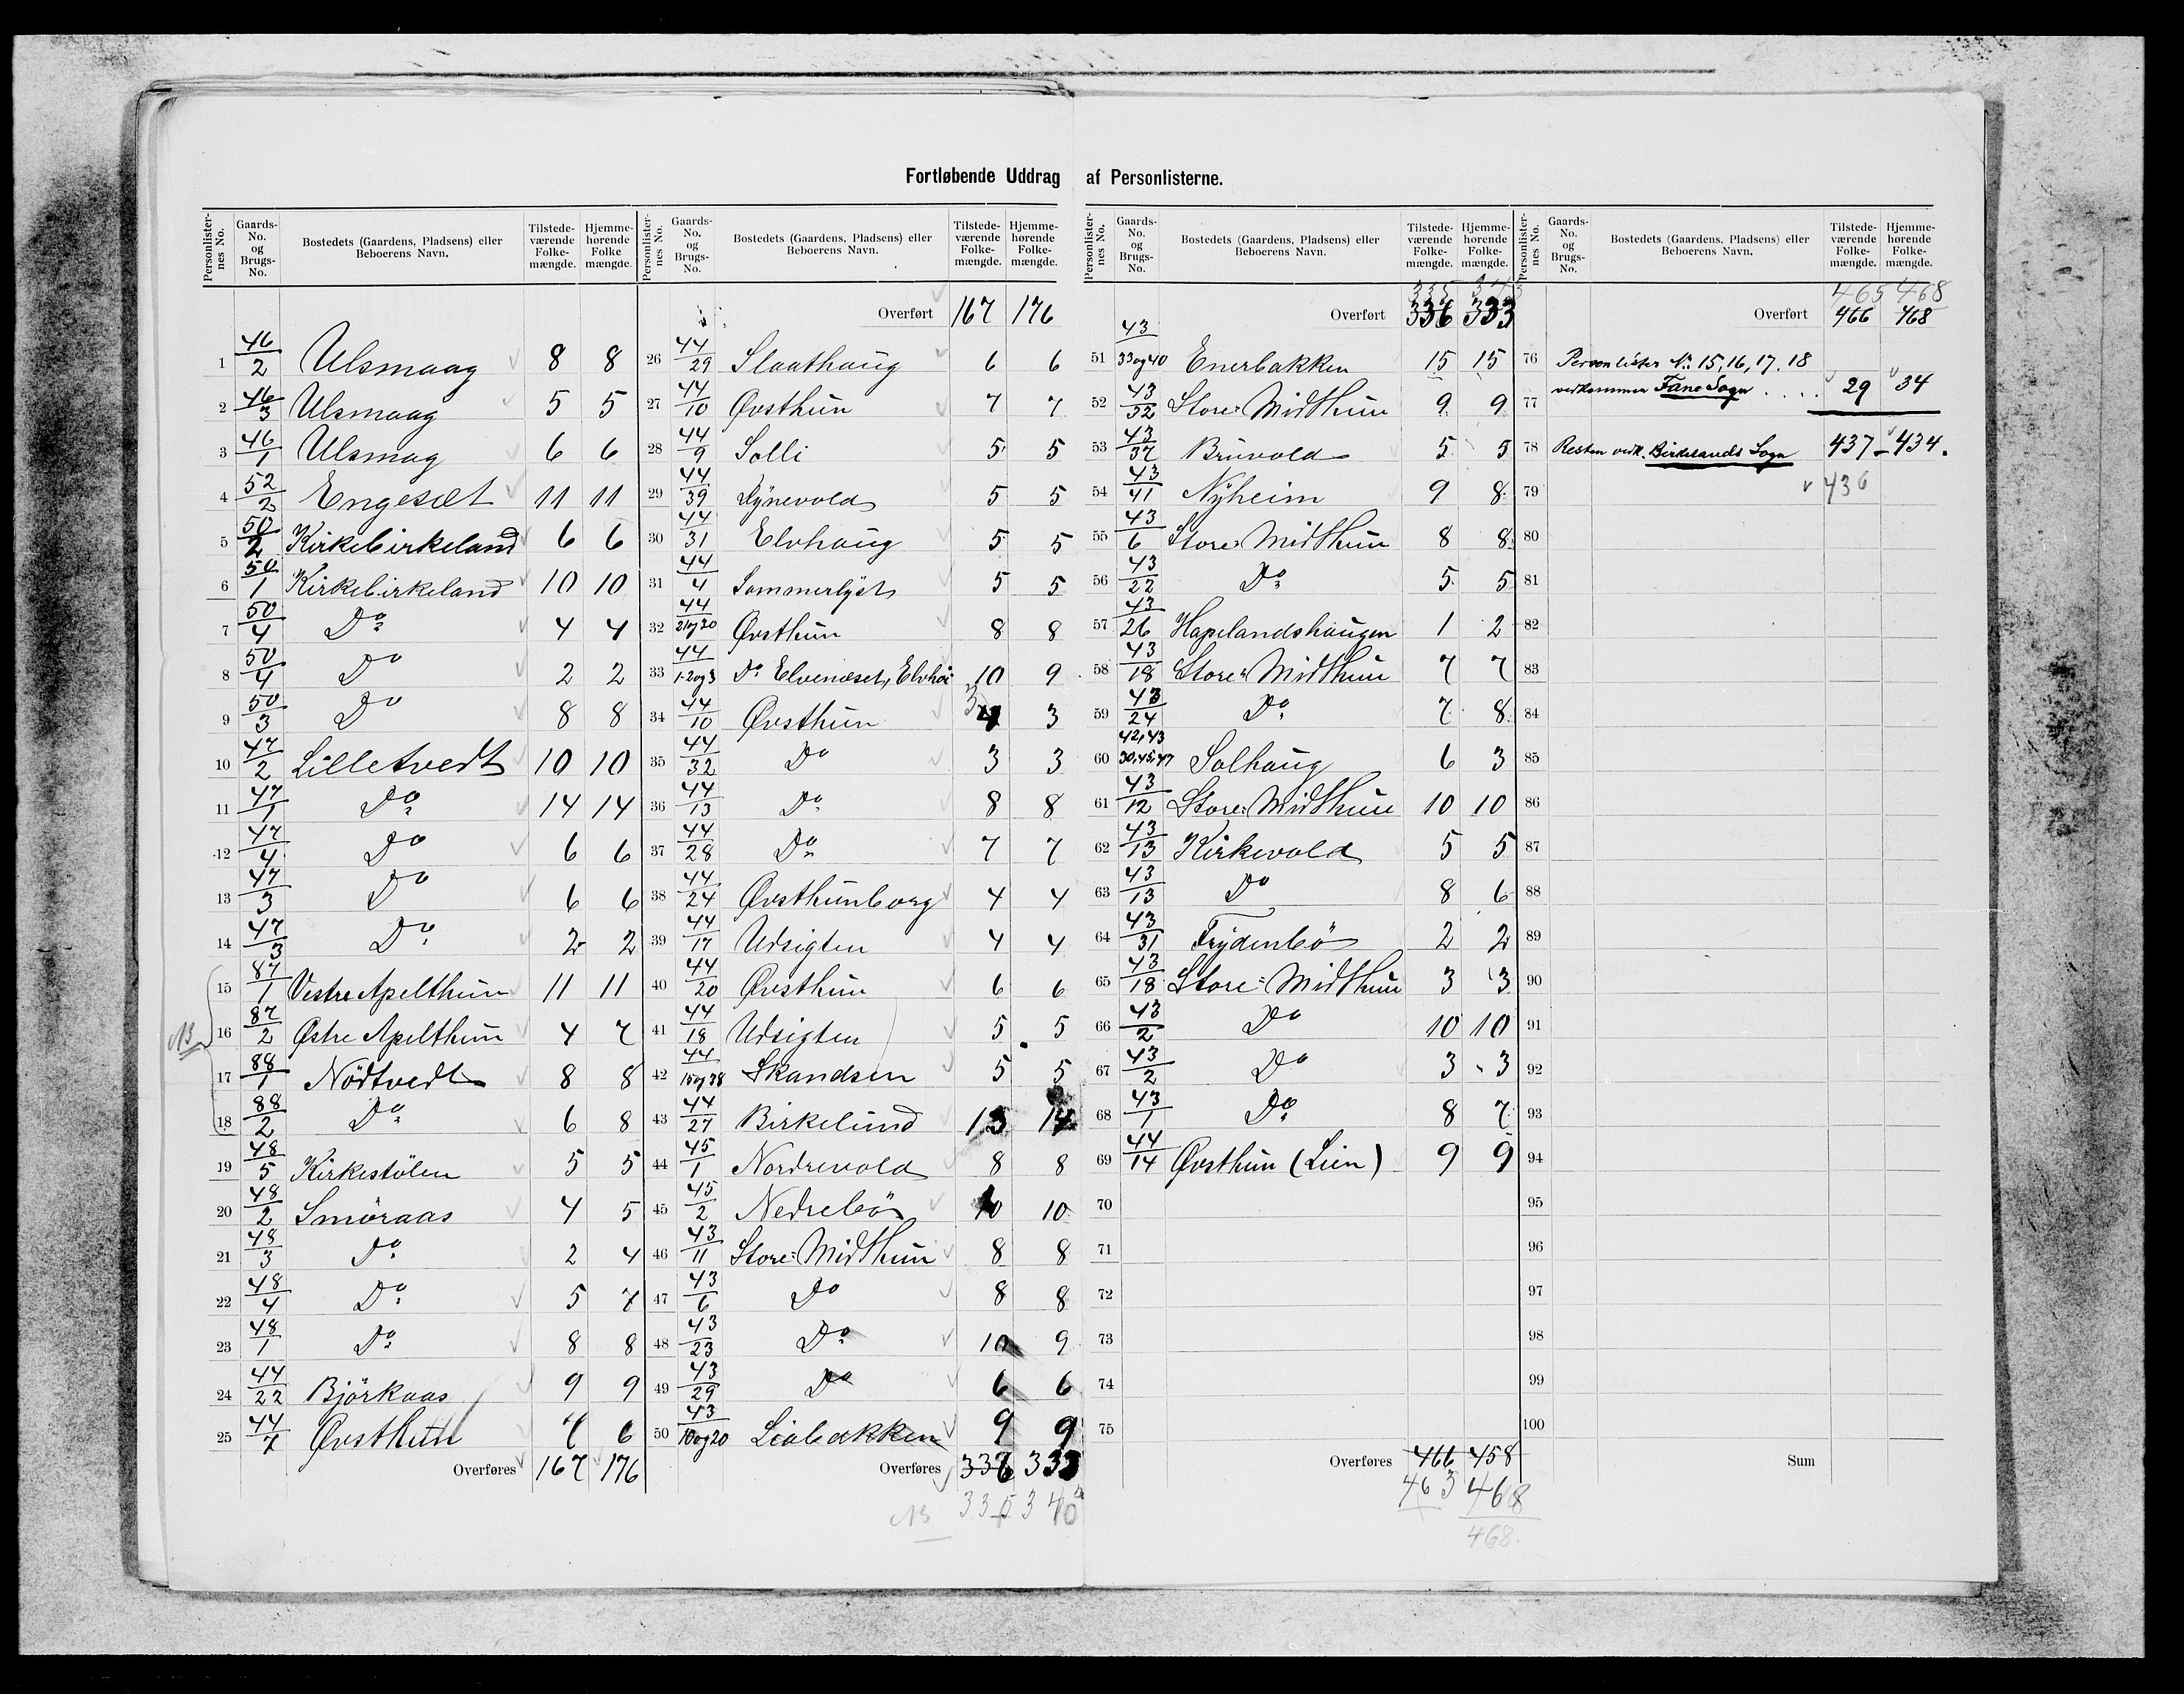 Fortløbende Uddrag af Personlisterne.
Personlisternes No. | Gaards-No. og Brugs-No. | Bostedets (Gaardens, Pladsens) eller Beboerens Navn. | Tilstedeværende Folkemængde. | Hjemmehørende Folkemængde.
1 46/2 Ulsmaag 8 8
2 46/3 Ulsmaag 5 5
3 46/1 Ulsmag 6 6
4 52/2 Engesæt 11 11
5 50/2 Kirkebirkeland 6 6
6 50/1 Kirkebirkeland 10 10
7 50/4 Do 4 4
8 50/4 Do 2 2
9 50/3 Do 8 8
10 47/2 Lilletvedt 10 10
11 47/1 Do 14 14
12 47/4 Do 6 6
13 47/3 Do 6 6
14 47/3 Do 2 2
15 87/1 Vestre Apelthun 11 11
NB
16 87/2 Østre Apelthun 4 7
17 88/1 Nödtvedt 8 8
18 88/2 Do 6 8
19 48/5 Kirkestölen 5 5
20 48/2 Smöraas 4 5
21 48/3 Do 2 4
22 48/4 Do 5 7
23 48/1 Do 8 8
24 44/22 Björkaas 9 9
25 44/7 Øvsthun 7 6
Overføres 167 176
Overført 167 176
26 44/29 Slaathaug 6 6
27 44/10 Øvsthun 7 7
28 44/9 Solli 5 5
29 44/39 Dynevold 5 5
30 44/31 Elvhaug 5 5
31 44/4 Sommerlyst 5 5
32 44/21og20 Øvsthun 8 8
33 44/1.2og3 Do Elvenæset, Elvhöi 10 9
34 44/10 Øvsthun 3 4 3
35 44/32 Do 3 3
36 44/13 Do 8 8
37 44/28 Do 7 7
38 44/24 Øvsthunborg 4 4
39 44/17 Udsigten 4 4
40 44/20 Øvsthun 6 6
41 44/18 Udsigten 5 5
42 44/15og38 Skandsen 5 5
43 44/27 Birkelund 13 14
44 45/1 Nordrevold 8 8
45 45/2 Nedrebö 10 10
46 43/11 Store-Midthun 8 8
47 43/6 Do 8 8
48 43/23 Do 10 9
49 43/29 Do 6 6
50 43/10og20 Liabakken 9 9
Overføres 336 333
NB 335 340
335 343
Overført 336 333
51 43/33og40 Enerbakken 15 15
52 43/32 Store-Midthun 9 9
53 43/37 Brunvold 5 5
54 43/41 Nyheim 9 8
55 43/6 Store-Midthun 8 8
56 43/22 Do 5 5
57 43/26 Hapelandshaugen 1 2
58 43/18 Store-Midthun 7 7
59 43/24 Do 7 8
60 42,43/30,45,47 Solhaug 6 3
61 43/12 Store-Midthun 10 10
62 43/13 Kirkevold 5 5
63 43/13 Do 8 6
64 43/31 Frydenbö 2 2
65 43/18 Store-Midthun 3 3
66 43/2 Do 10 10
67 43/2 Do 3 3
68 43/1 Do 8 7
69 44/14 Øvsthun (Lien) 9 9
70
71
72
73
74
75
Overføres 466 458
463 468
468.
465 468
Overført 466 468
76 Personlister No 15, 16, 17, 18
77 vedkommer Fane Sogn .... 29 34
78 Resten vedk. Birkelands Sogn 437 - 434.
79 436
80
81
82
83
84
85
86
87
88
89
90
91
92
93
94
95
96
97
98
99
100
Sum